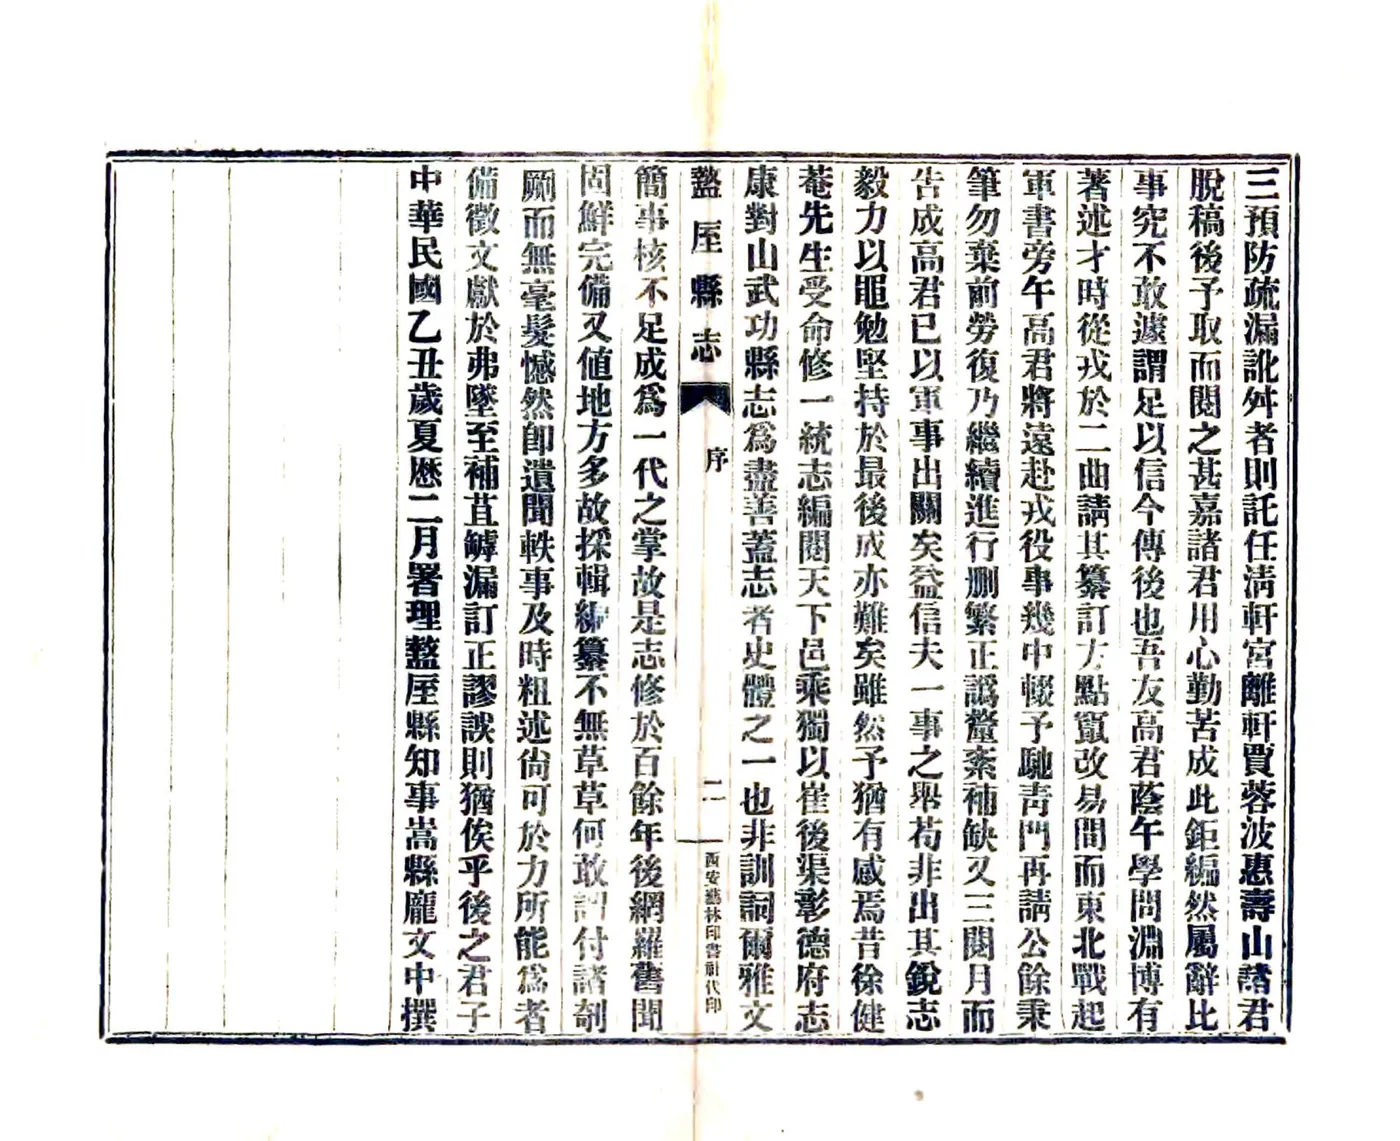 三預防疏漏訛舛者則託任淸軒宮離軒賈蓉波惠壽山諸君
脫稿後予取而閱之甚嘉諸君用心勤苦成此鉅編然屬辭比
事究不敢遽謂足以信今傳後也吾友高君蔭午學問淵博有
著述才時從戎於二曲請其纂訂方點竄改易間而東北戰起
軍書旁午高君將遠赴戎役事幾中輟予馳靑門再請公餘秉
筆勿棄前勞復乃繼續進行删繁正譌釐紊補缺又三閱月而
告成高君已以軍事出關矣益信夫一事之舉苟非出其銳志
毅力以黽勉堅持於最後成亦難矣雖然予猶有感焉昔徐健
菴先生受命修一統志編閱天下邑乘獨以崔後渠彰德府志
康對山武功縣志爲盡善蓋志者史體之一也非訓詞爾雅文
盩厔縣志
序
二
西安藝林印書社代印
簡事核不足成爲一代之掌故是志修於百餘年後網羅舊聞
固鮮完備又値地方多故採輯編纂不無草草何敢謂付諸剞
劂而無毫髮憾然卽遺聞軼事及時粗述尙可於力所能爲者
備徵文獻於弗墜至補苴罅漏訂正謬誤則猶俟乎後之君子
中華民國乙丑歲夏歷二月署理盩厔縣知事嵩縣龐文中撰